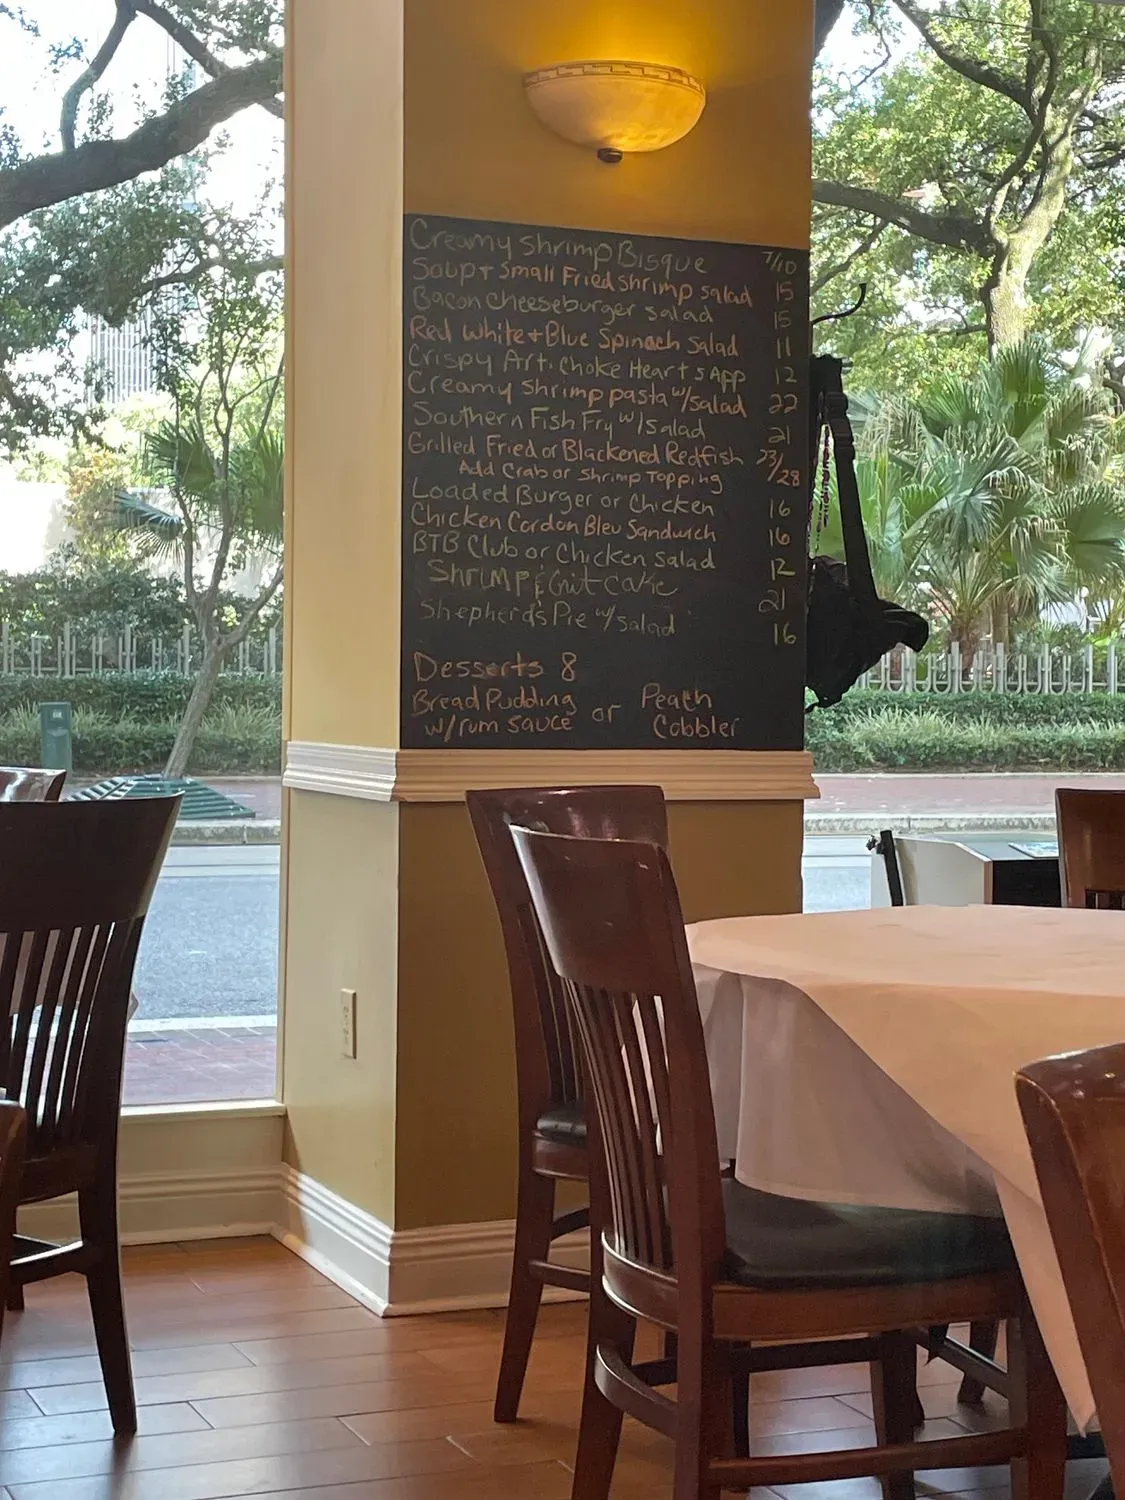 Creamy Shrimp Bisque 7/10
Soup + Small Fried shrimp salad 15
Bacon cheeseburger salad 15
Red White + Blue Spinach Salad 11
Crispy Artichoke Hearts App 12
Creamy Shrimp pasta w/salad 22
Southern Fish Fry w/salad 21
Grilled Fried or Blackened Redfish 23/28
Add Crab or Shrimp Topping
Loaded Burger or Chicken 16
Chicken Cordon Bleu Sandwich 16
BTB Club or Chicken Salad 12
Shrimp & Grit Cake 21
Shepherd's Pie w/salad 16
Desserts 8
Bread Pudding w/rum sauce or Peach Cobbler